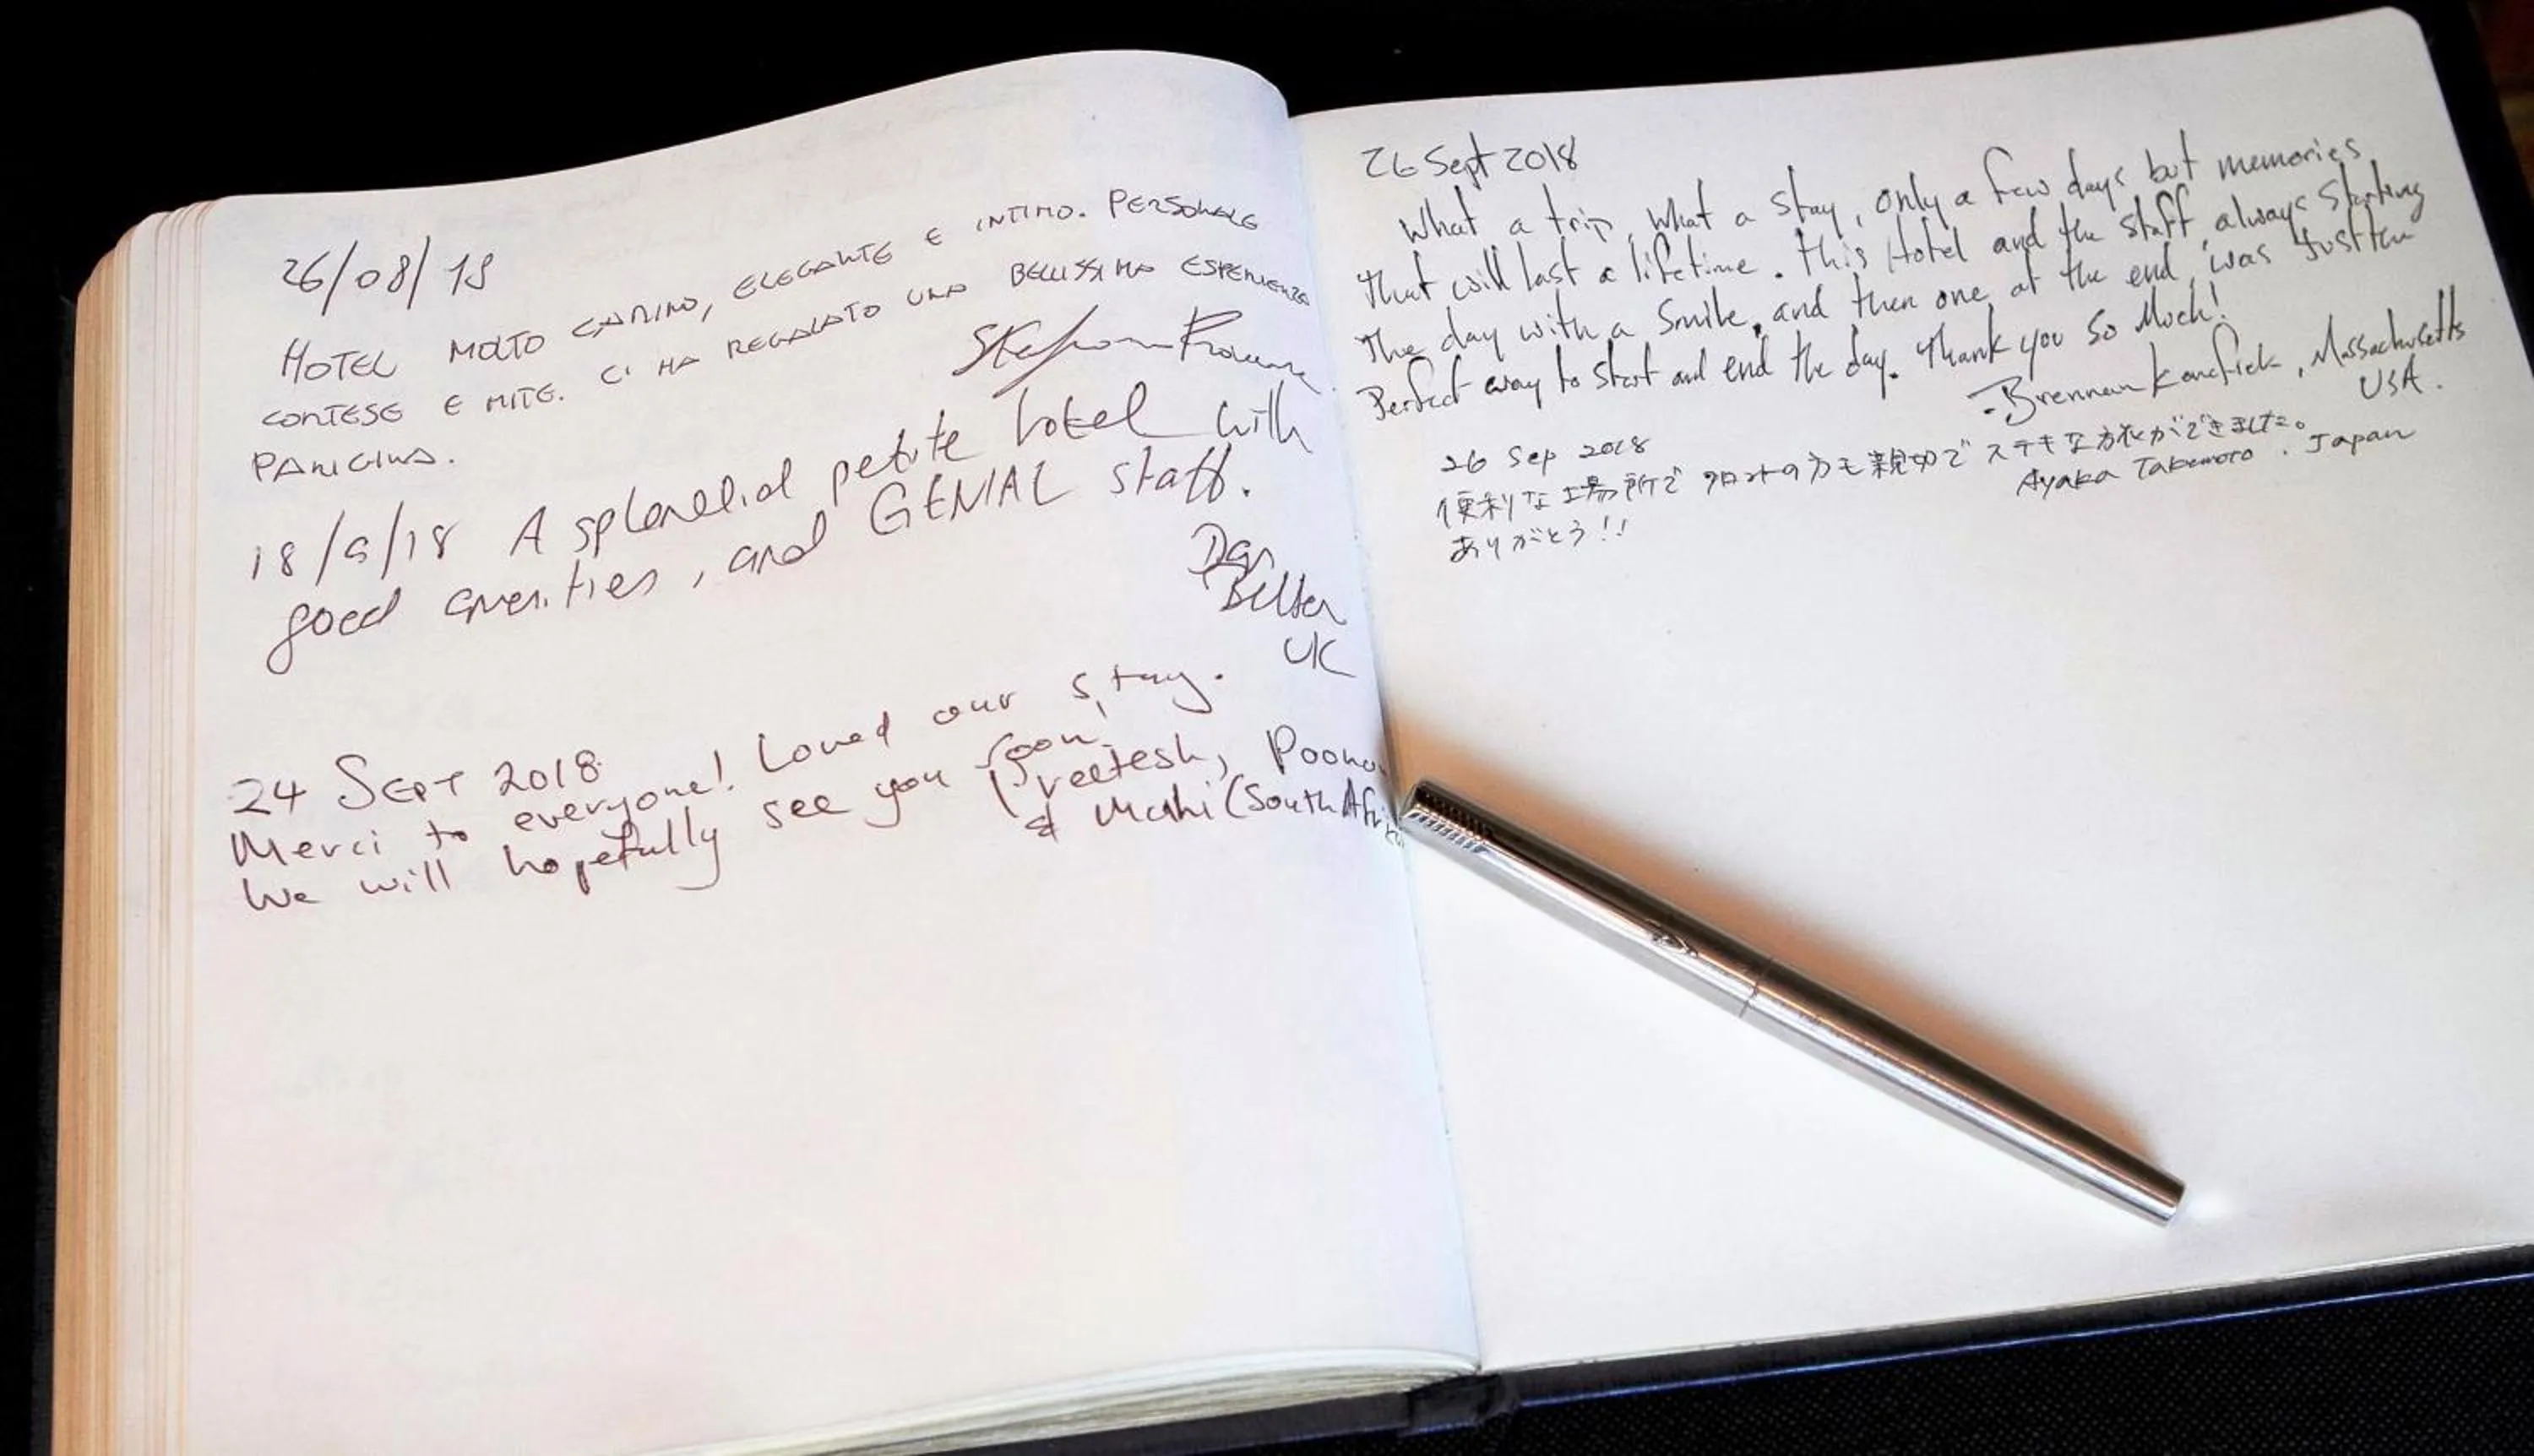 26/08/18
HOTEL MOLTO CARINO, ELEGANTE E INTIMO. PERSONALE
CORTESE E MITE. CI HA REGALATO UNA BELLISSIMA ESPERIENZA
PARIGINA.
18/9/18 A splendid petite hotel with
good amenities, and GENIAL staff.
Dan
UK
24 SEPT 2018
Merci to everyone! Loved our stay.
We will hopefully see you soon.
Preetesh, Poonam
& Mahi (South Africa
26 Sept 2018
What a trip, what a stay, only a few days but memories
that will last a lifetime. This Hotel and the staff, always starting
the day with a smile, and then one at the end, was just the
Perfect way to start and end the day. Thank you so Much!
- Brennan, Massachusetts
USA.
26 Sep 2018
便利な場所で フロントの方も親切で ステキな旅ができました。
ありがとう!!
Ayaka Takemoto. Japan